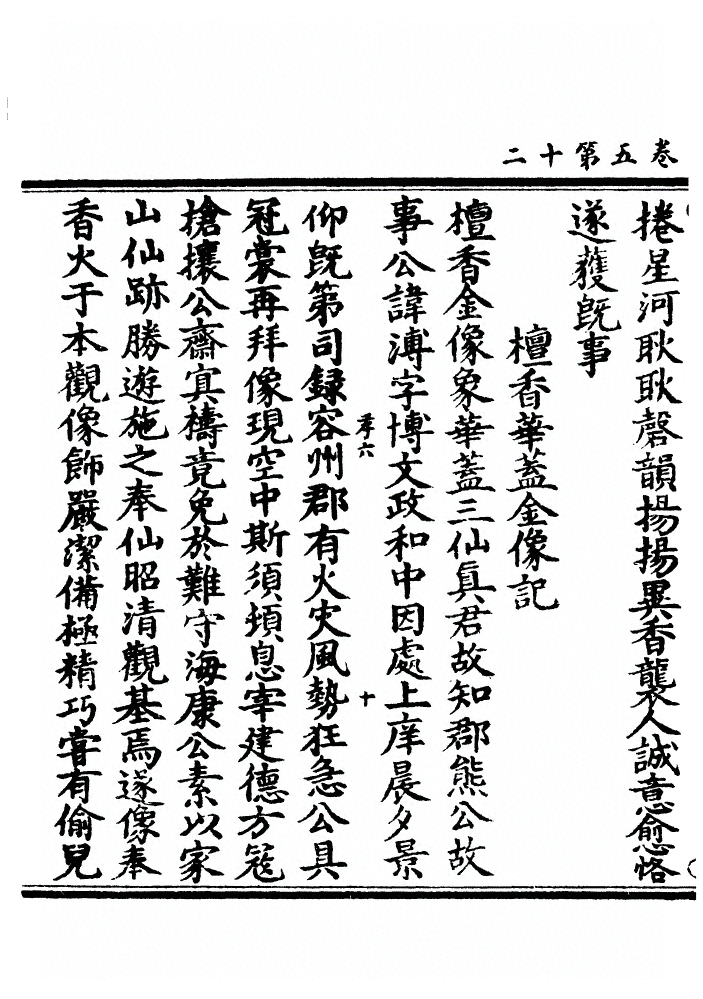 卷五第十二
捲星河耿耿磬韻揚揚異香襲人誠意愈恪
遂蒦旣事
檀香華蓋金像記
檀香金像象華蓋三仙眞君故知郡熊公故
事公諱溥字博文政和中因處上庠晨夕景
仰旣第司録容州郡有火灾風勢狂急公具
冠裳再拜像現空中斯須頃息宰建德方冦
搶攘公齋寘禱竟免於難守海康公素以家
山仙跡勝遊施之奉仙昭清觀基焉遂像奉
香火于本觀像飾嚴潔備極精巧嘗有偷兒
十